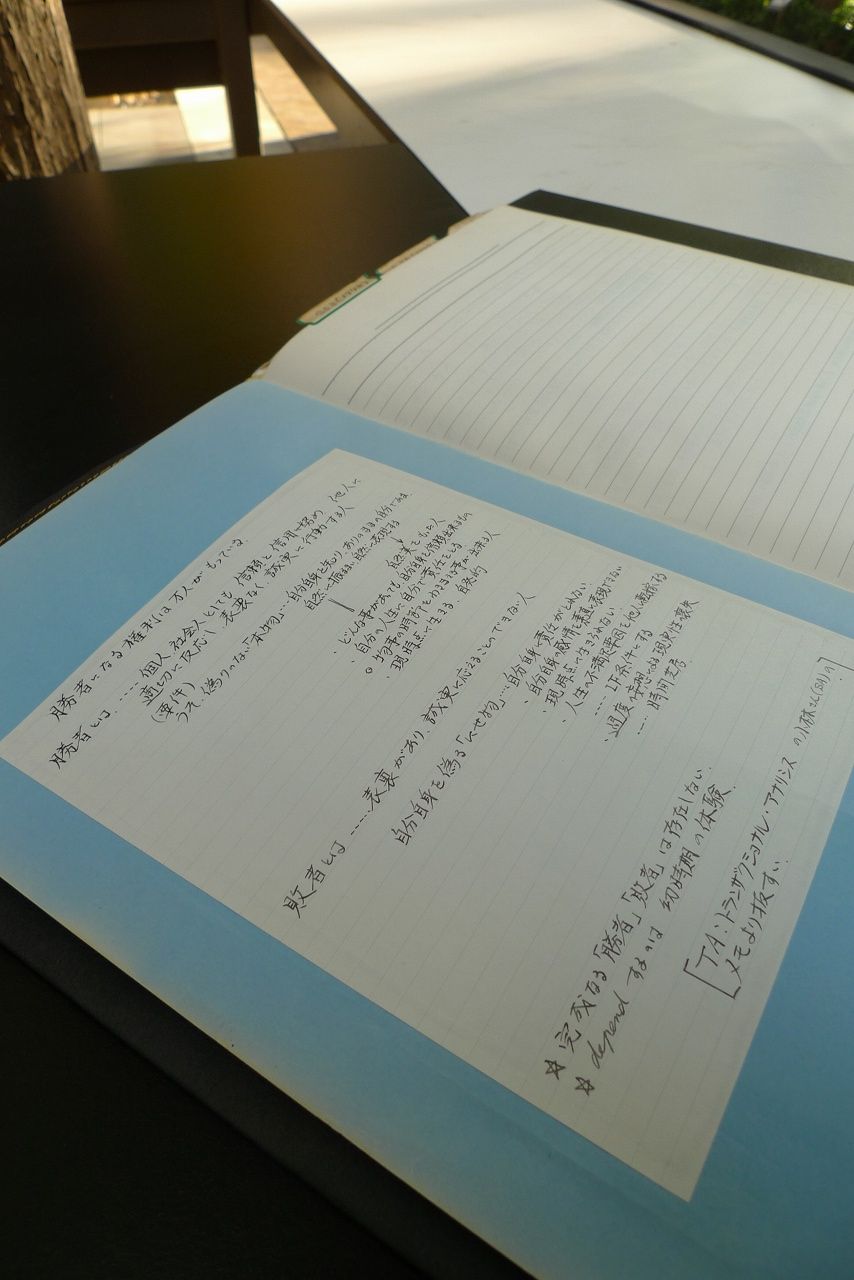 勝者になる権利は万人がもっている
勝者とは……個人、社会人としても、信頼と信用に努め、他人に
適切に反応し、表裏なく、誠実に行動する人
(要件)
うそ、偽りのない「本物」…自分自身を知り、ありのままの自分である
自然に振まい自然に表現する
自然美をもった人
・どんな事があっても、自分自身を信頼出来るもの
・自分の人生に自分で責任をとる
○物事の時節をわきまえる事が出来る人
・現時点に生きる、自発的
敗者とは……表裏があり、誠実に応えることのできない人
自分自身を偽る「にせ物」…自分自身に責任がとれない
・自分自身の感情を素直に表現できない
現時点に生きられない
・人生の不満足要因を他人に転嫁する
……IF条件にする
・過度の空想による現実性の喪失
……時間
☆完成なる「勝者」「敗者」は存在しない。
☆dependするのは 幼時期の体験
[TA:トランザクショナル・アナリシス の小林さん
メモより抜すい]